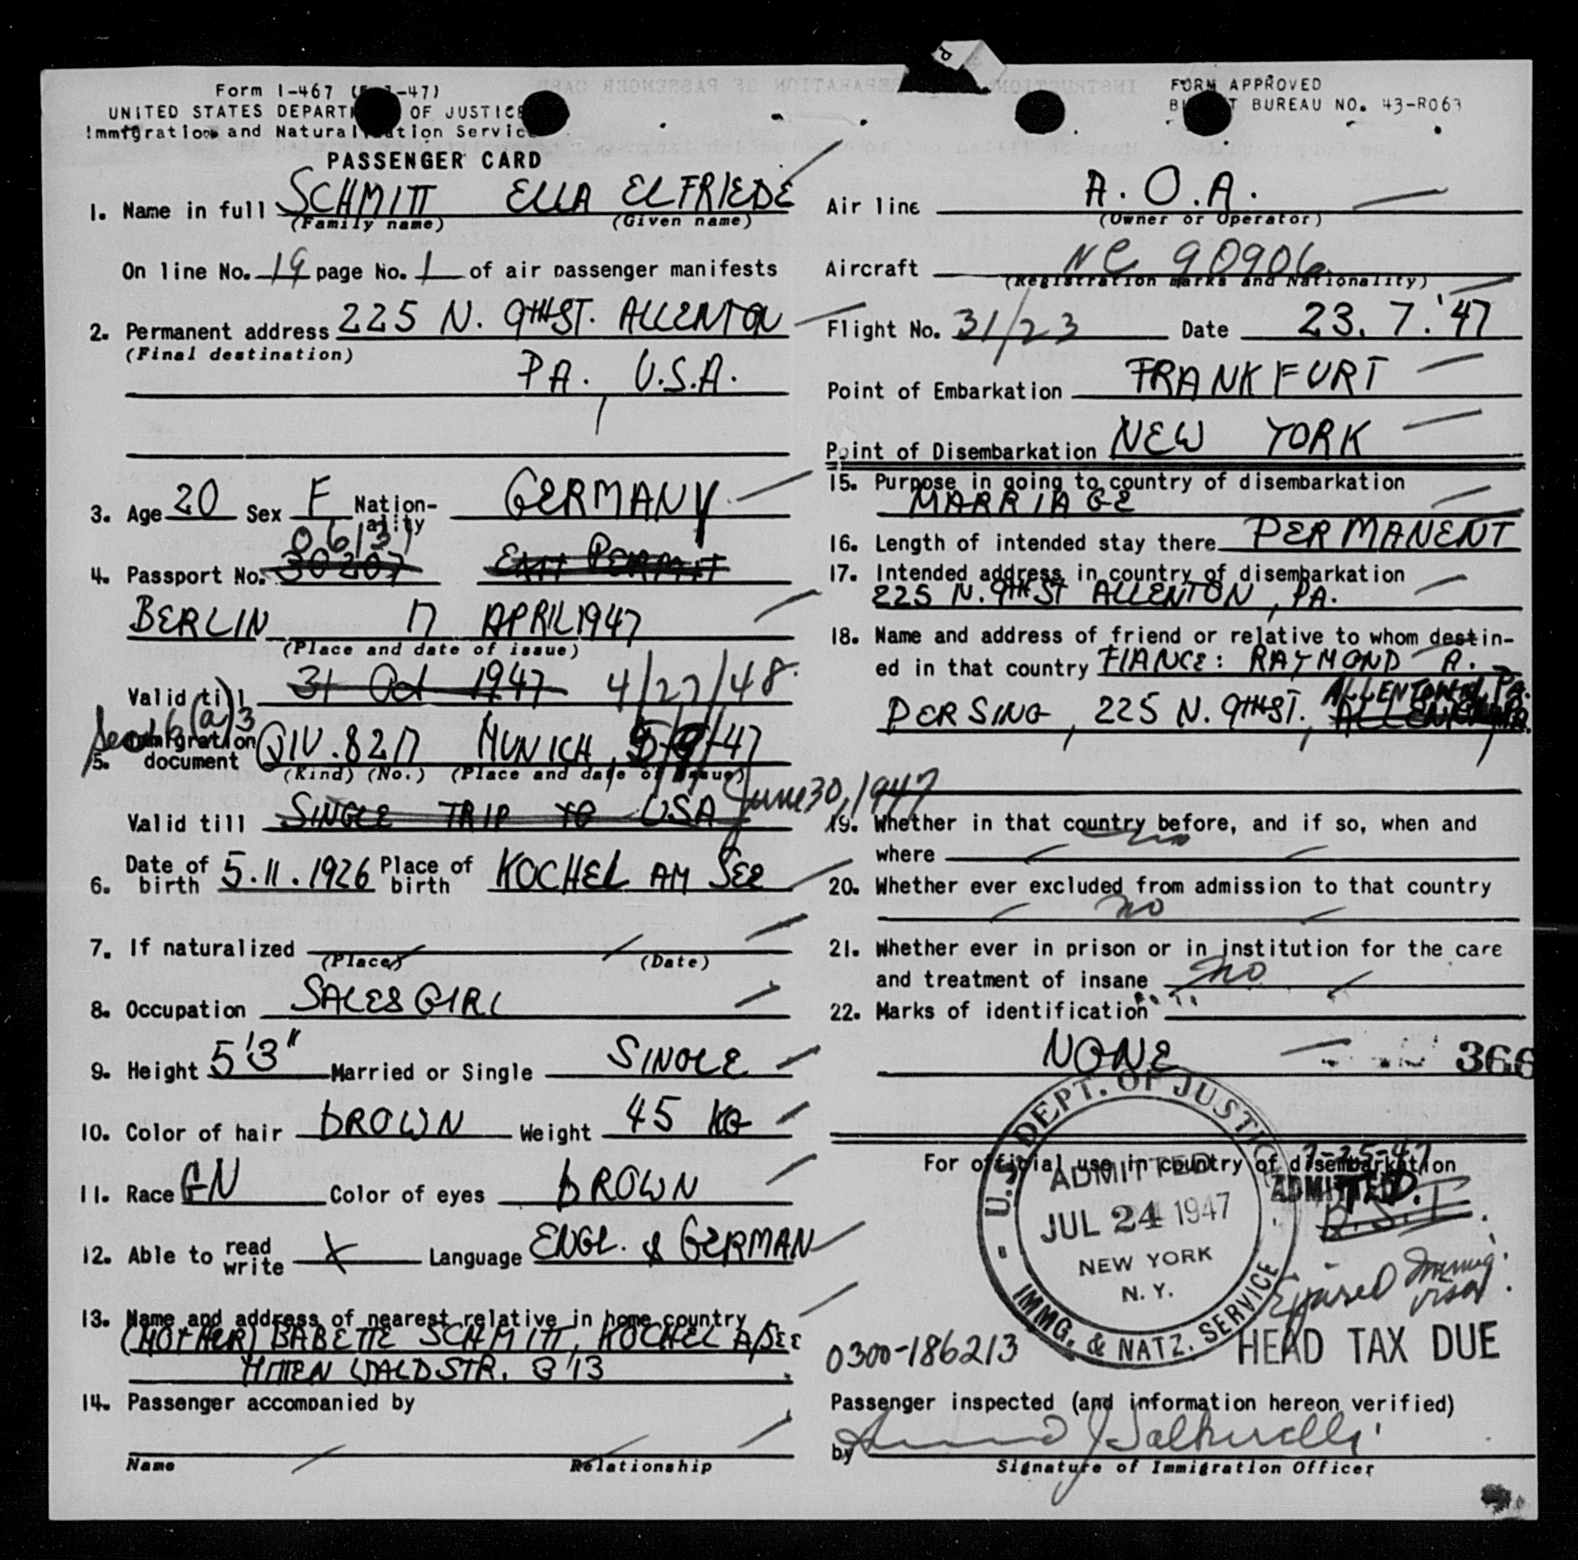 Form I-467 -47)
UNITED STATES DEPARTMENT OF JUSTICE
Immigration and Naturalization Service
PASSENGER CARD
1. Name in full SCHMITT ELLA ELFRIEDE
(Family name) (Given name)
On line No. 19 page No. 1 of air passenger manifests
2. Permanent address 225 N. 9TH ST. ALLENTON
(Final destination)
PA. U.S.A.
3. Age 20 Sex F Nation-ality GERMANY
06131
4. Passport No. 30207 EXIT PERMIT
BERLIN 17 APRIL 1947
(Place and date of issue)
Valid till 31 Oct 1947 4/27/48.
Sec 6(a)3
5. Immigration document QIV. 8217 MUNICH, 5/9/47
(Kind) (No.) (Place and date of issue)
Valid till SINGLE TRIP TO USA June 30, 1947
6. Date of birth 5.11.1926 Place of birth KOCHEL AM SEE
7. If naturalized
(Place) (Date)
8. Occupation SALESGIRL
9. Height 5'3" Married or Single SINGLE
10. Color of hair BROWN Weight 45 KG
11. Race GN Color of eyes BROWN
12. Able to read write X Language ENGL. & GERMAN
13. Name and address of nearest relative in home country
(MOTHER) BABETTE SCHMITT, KOCHEL A/SEE
MITTENWALDSTR. 8'13
14. Passenger accompanied by
Name Relationship
FORM APPROVED
BUDGET BUREAU NO. 43-R063
Air line A.O.A.
(Owner or Operator)
Aircraft NC 90906
(Registration marks and Nationality)
Flight No. 31/23 Date 23.7.'47
Point of Embarkation FRANKFURT
Point of Disembarkation NEW YORK
15. Purpose in going to country of disembarkation
MARRIAGE
16. Length of intended stay there PERMANENT
17. Intended address in country of disembarkation
225 N. 9TH ST ALLENTON, PA.
18. Name and address of friend or relative to whom destin-
ed in that country FIANCE: RAYMOND A.
PERSING, 225 N. 9TH ST., ALLENTOWN, PA.
19. Whether in that country before, and if so, when and
where no
20. Whether ever excluded from admission to that country
no
21. Whether ever in prison or in institution for the care
and treatment of insane no
22. Marks of identification
NONE
366
For official use in country of disembarkation
U.S. DEPT. OF JUSTICE
ADMITTED
JUL 24 1947
NEW YORK
N. Y.
IMMG. & NATZ. SERVICE
7-25-47
ADMITTED.
B.S.I.
Expired Immig. visa.
0300-186213
HEAD TAX DUE
Passenger inspected (and information hereon verified)
by
Signature of Immigration Officer